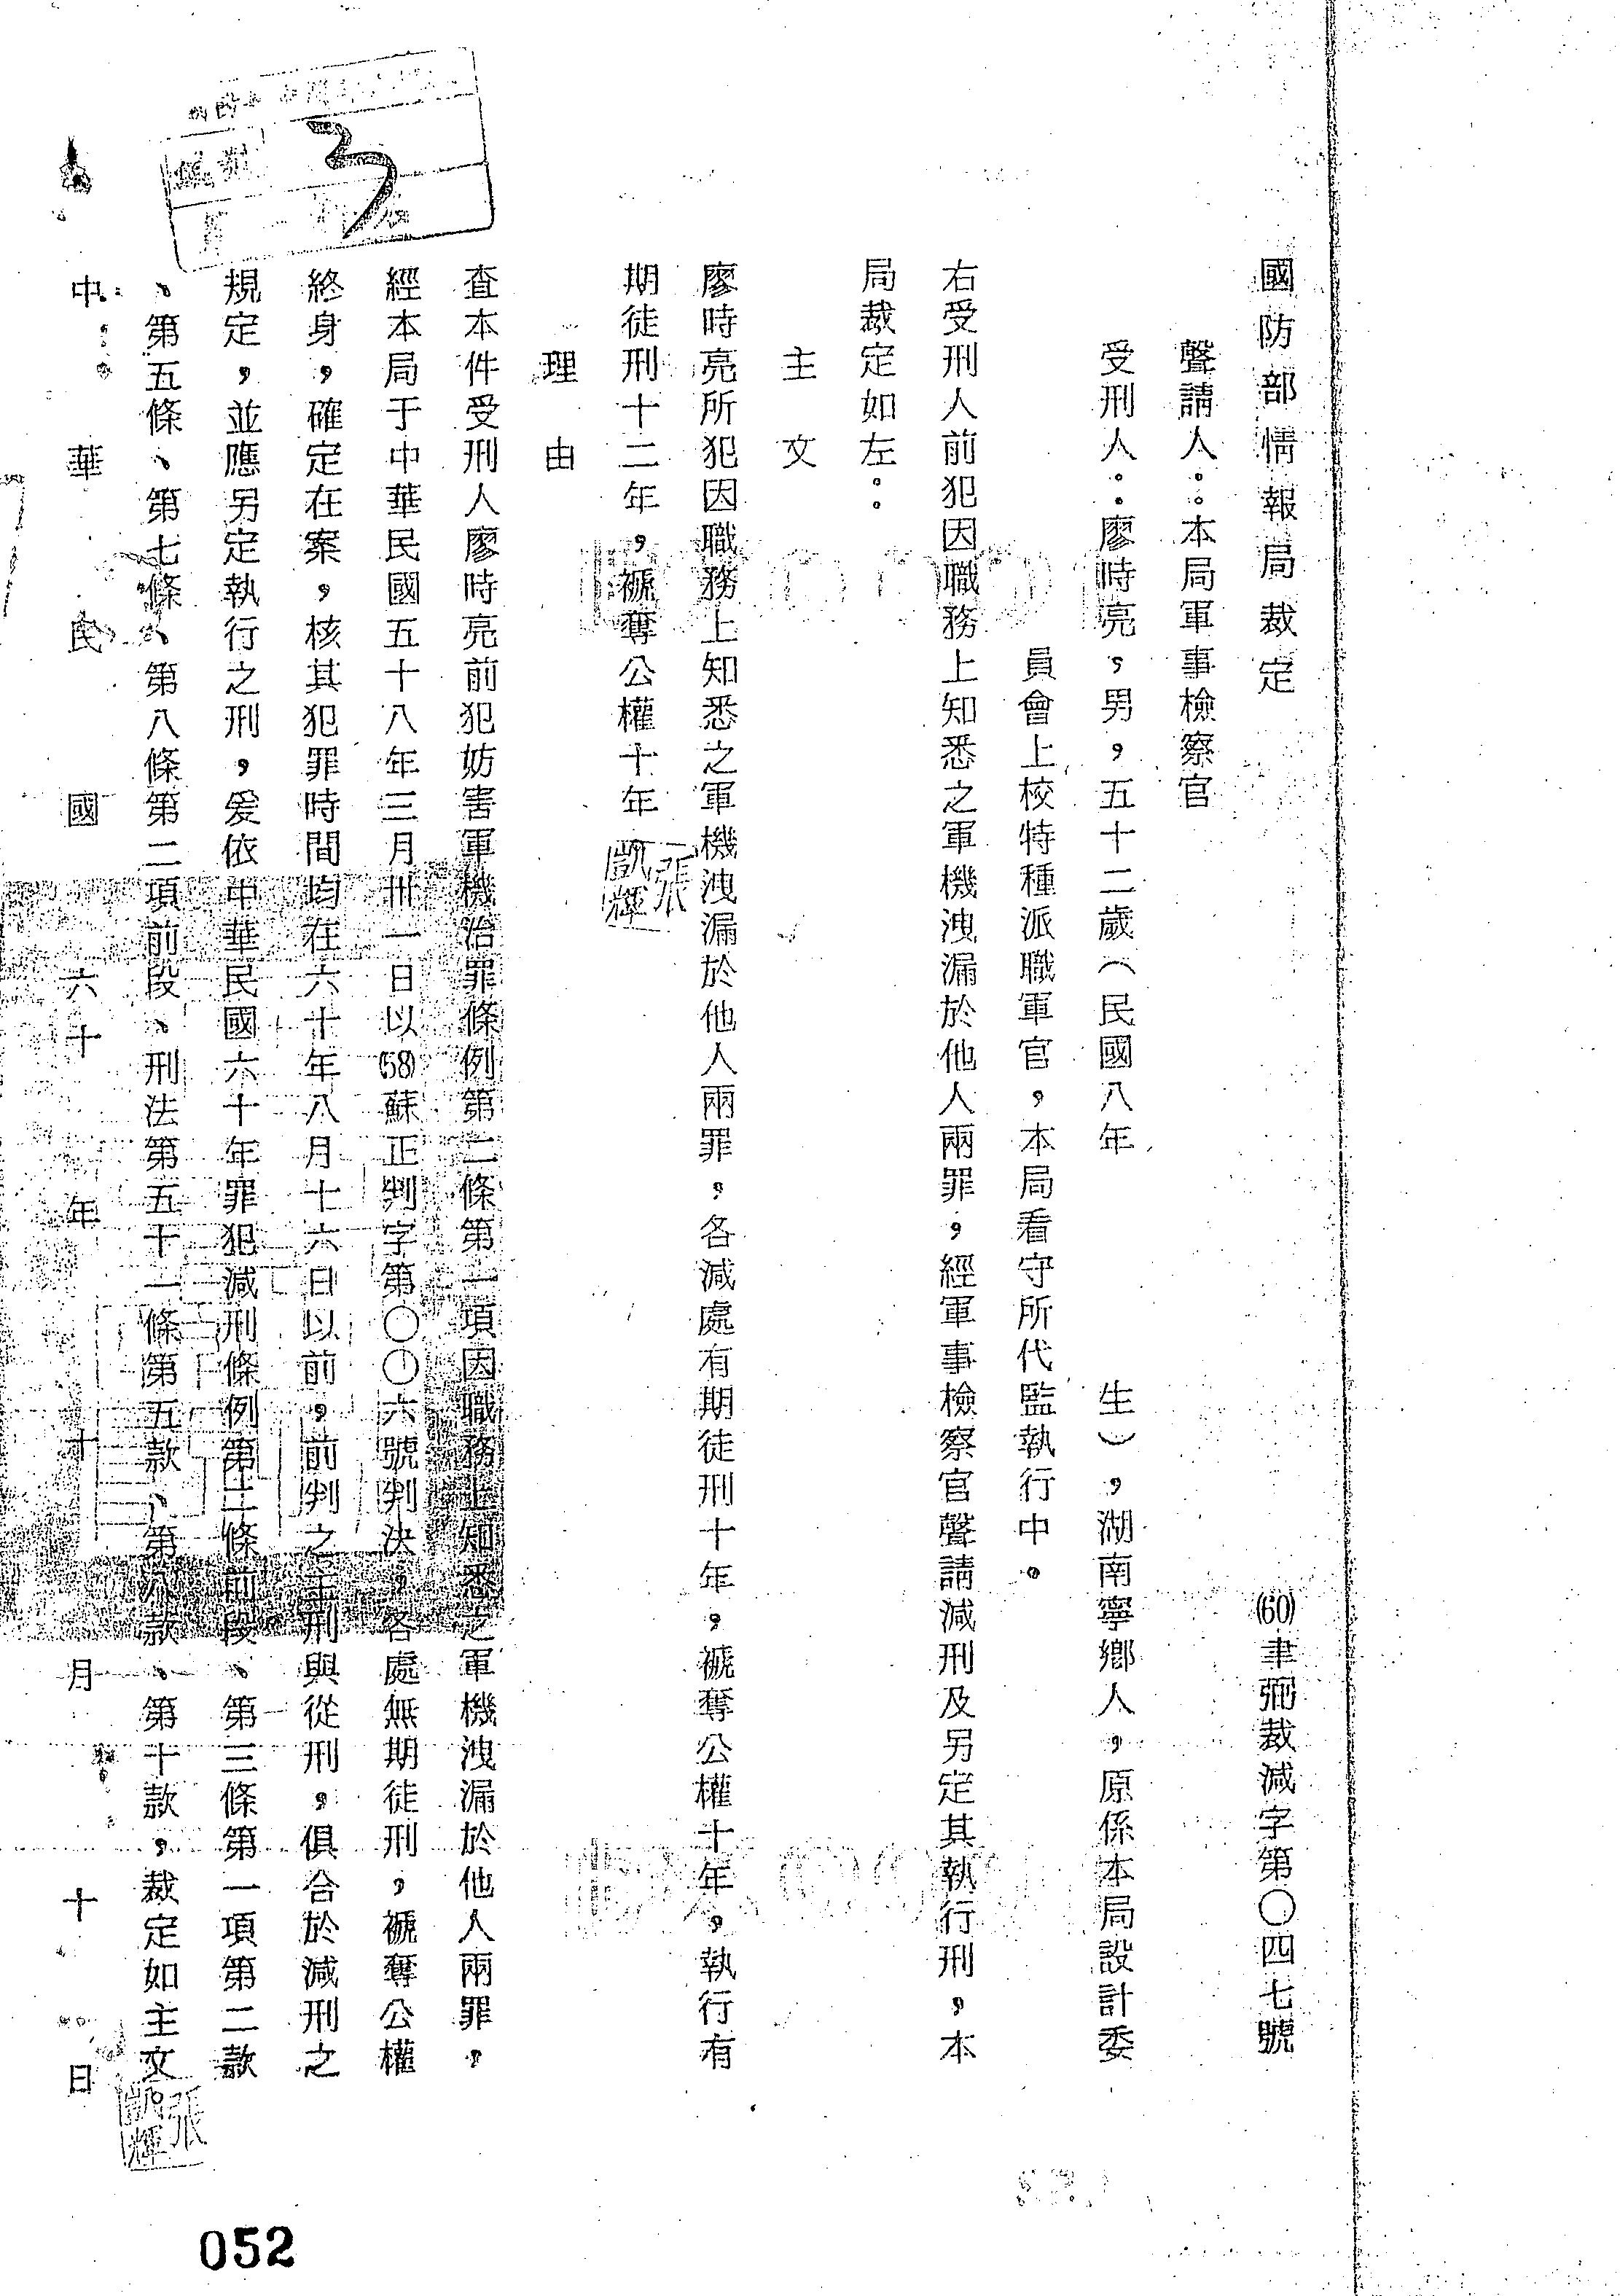 國防部情報局裁定
(60)聿弼裁減字第〇四七號
聲請人：本局軍事檢察官
受刑人：廖時亮，男，五十二歲（民國八年生），湖南寧鄉人，原係本局設計委
員會上校特種派職軍官，本局看守所代監執行中。
右受刑人前犯因職務上知悉之軍機洩漏於他人兩罪，經軍事檢察官聲請減刑及另定其執行刑，本
局裁定如左：
主文
廖時亮所犯因職務上知悉之軍機洩漏於他人兩罪，各減處有期徒刑十年，褫奪公權十年，執行有
期徒刑十二年，褫奪公權十年。
張凱輝
理由
查本件受刑人廖時亮前犯妨害軍機治罪條例第二條第一項因職務上知悉之軍機洩漏於他人兩罪，
經本局于中華民國五十八年三月卅一日以(58)蘇正判字第〇〇六號判決，各處無期徒刑，褫奪公權
終身，確定在案，核其犯罪時間均在六十年八月十六日以前，前判之主刑與從刑，俱合於減刑之
規定，並應另定執行之刑，爰依中華民國六十年罪犯減刑條例第二條前段、第三條第一項第二款
、第五條、第七條、第八條第二項前段、刑法第五十一條第五款、第八款、第十款，裁定如主文。
張凱輝
中華民國六十年十月十日
3
052